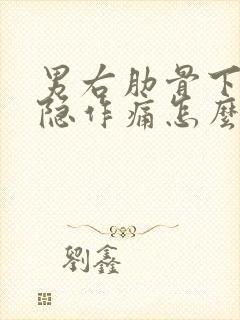 男右肋骨下
隐作痛怎麽
劉鑫